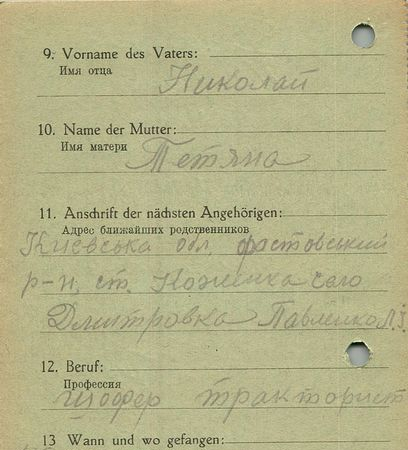 9. Vorname des Vaters:
Имя отца
Николай
10. Name der Mutter:
Имя матери
Тетяна
11. Anschrift der nächsten Angehörigen:
Адрес ближайших родственников
Киевська обл. фастовський
р-н, ст. Кожанка село
Дмитровка Павленко
12. Beruf:
Профессия
шофер тракторист
13 Wann und wo gefangen: